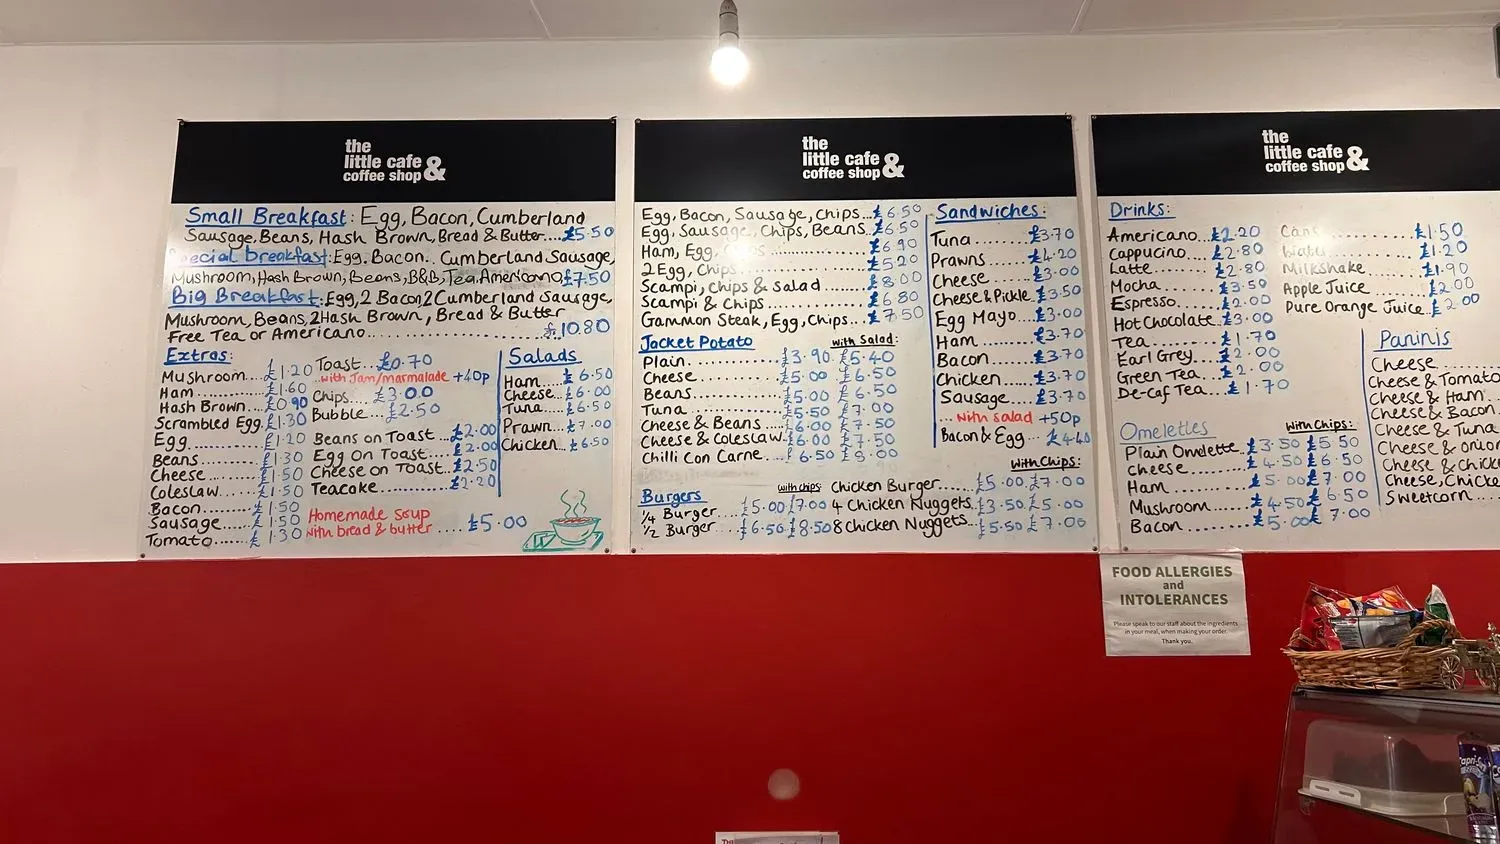 the
little cafe &
coffee shop
Small Breakfast: Egg, Bacon, Cumberland
Sausage, Beans, Hash Brown, Bread & Butter....£5.50
Special Breakfast: Egg, Bacon, Cumberland Sausage,
Mushroom, Hash Brown, Beans, B&B, Tea, Americano £7.50
Big Breakfast: Egg, 2 Bacon, 2 Cumberland Sausage,
Mushroom, Beans, 2 Hash Brown, Bread & Butter
Free Tea or Americano.................£10.80
Extras:
Mushroom....£1.20
Ham.........£1.60
Hash Brown...£0.90
Scrambled Egg.£1.30
Egg.........£1.20
Beans.......£1.30
Cheese......£1.50
Coleslaw....£1.50
Bacon.......£1.50
Sausage.....£1.50
Tomato......£1.30
Toast...£0.70
...with Jam/marmalade +40p
Chips...£3.00
Bubble...£2.50
Beans on Toast...£2.00
Egg on Toast....£2.00
Cheese on Toast...£2.50
Teacake.........£2.20
Homemade Soup
with bread & butter....£5.00
Salads
Ham.....£6.50
Cheese...£6.00
Tuna....£6.50
Prawn...£7.00
Chicken..£6.50
the
little cafe &
coffee shop
Egg, Bacon, Sausage, Chips...£6.50
Egg, Sausage, Chips, Beans..£6.50
Ham, Egg, Chips..........£6.90
2 Egg, Chips............£5.20
Scampi, Chips & Salad....£8.00
Scampi & Chips..........£6.80
Gammon Steak, Egg, Chips...£7.50
Jacket Potato with Salad:
Plain...........£3.90 £5.40
Cheese..........£5.00 £6.50
Beans...........£5.00 £6.50
Tuna............£5.50 £7.00
Cheese & Beans....£6.00 £7.50
Cheese & Coleslaw..£6.00 £7.50
Chilli Con Carne...£6.50 £8.00
Burgers with chips:
1/4 Burger...£5.00 £7.00
1/2 Burger...£6.50 £8.50
with Chips:
Chicken Burger....£5.00 £7.00
4 Chicken Nuggets..£3.50 £5.00
8 Chicken Nuggets...£5.50 £7.00
Sandwiches:
Tuna........£3.70
Prawns......£4.20
Cheese......£3.00
Cheese & Pickle..£3.50
Egg Mayo....£3.00
Ham.........£3.70
Bacon.......£3.70
Chicken.....£3.70
Sausage.....£3.70
...with salad +50p
Bacon & Egg...£4.40
the
little cafe &
coffee shop
Drinks:
Americano...£2.20
Cappuccino...£2.80
Latte.......£2.80
Mocha.......£3.50
Espresso....£2.00
Hot Chocolate..£3.00
Tea.........£1.70
Earl Grey...£2.00
Green Tea...£2.00
De-Caf Tea...£1.70
Cans...........£1.50
Water..........£1.20
Milkshake......£1.90
Apple Juice....£2.00
Pure Orange Juice..£2.00
Omelettes with Chips:
Plain Omelette..£3.50 £5.50
Cheese.........£4.50 £6.50
Ham............£5.00 £7.00
Mushroom.......£4.50 £6.50
Bacon..........£5.00 £7.00
Paninis
Cheese
Cheese & Tomato
Cheese & Ham
Cheese & Bacon
Cheese & Tuna
Cheese & onion
Cheese & chick
Cheese, Chicke
Sweetcorn
FOOD ALLERGIES
and
INTOLERANCES
Please speak to our staff about the ingredients
in your meal, when making your order.
Thank you.